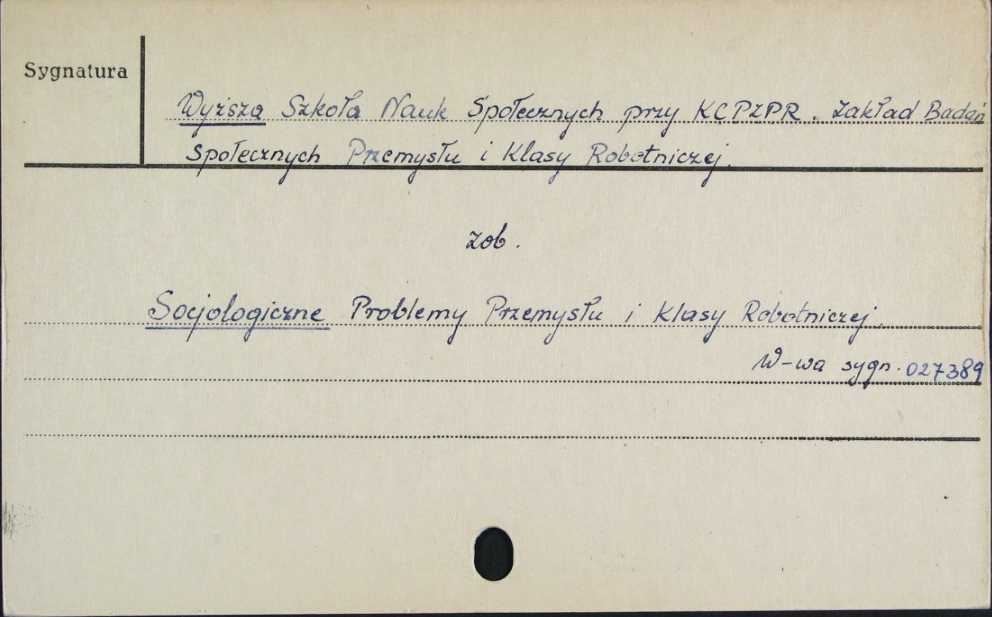 Sygnatura
Wyższa Szkoła Nauk Społecznych przy KCPZPR. Zakład Badań
Społecznych Przemysłu i Klasy Robotniczej.
zob.
Socjologiczne Problemy Przemysłu i Klasy Robotniczej.
W-wa sygn. 027389